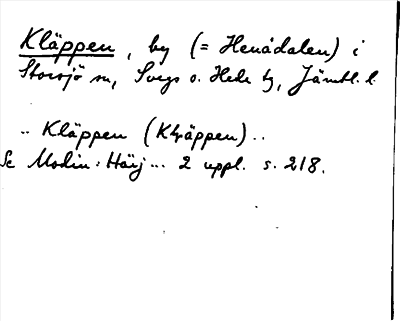 Kläppen, by (= Henådalen) i
Storsjö sn, Svegs o. Hede tg, Jämtl. l.
.. Kläppen (Kłäppen)..
Se Modin: Härj... 2 uppl. s. 218.